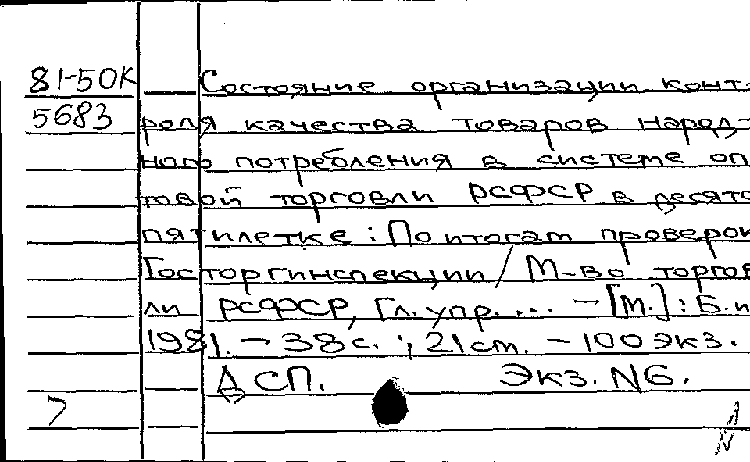 81-50К Состояние организации конт
5683 роля качества товаров народ-
ного потребления в системе оп
товой торговли РСФСР в десято
пятилетке: По итогам проверок
Госторгинспекции / М-во торгов
ли РСФСР, Гл. упр. ... - [М.] : Б. и
1981. - 38 с. ; 21 см. - 100 экз.
ДСП. Экз. N6.